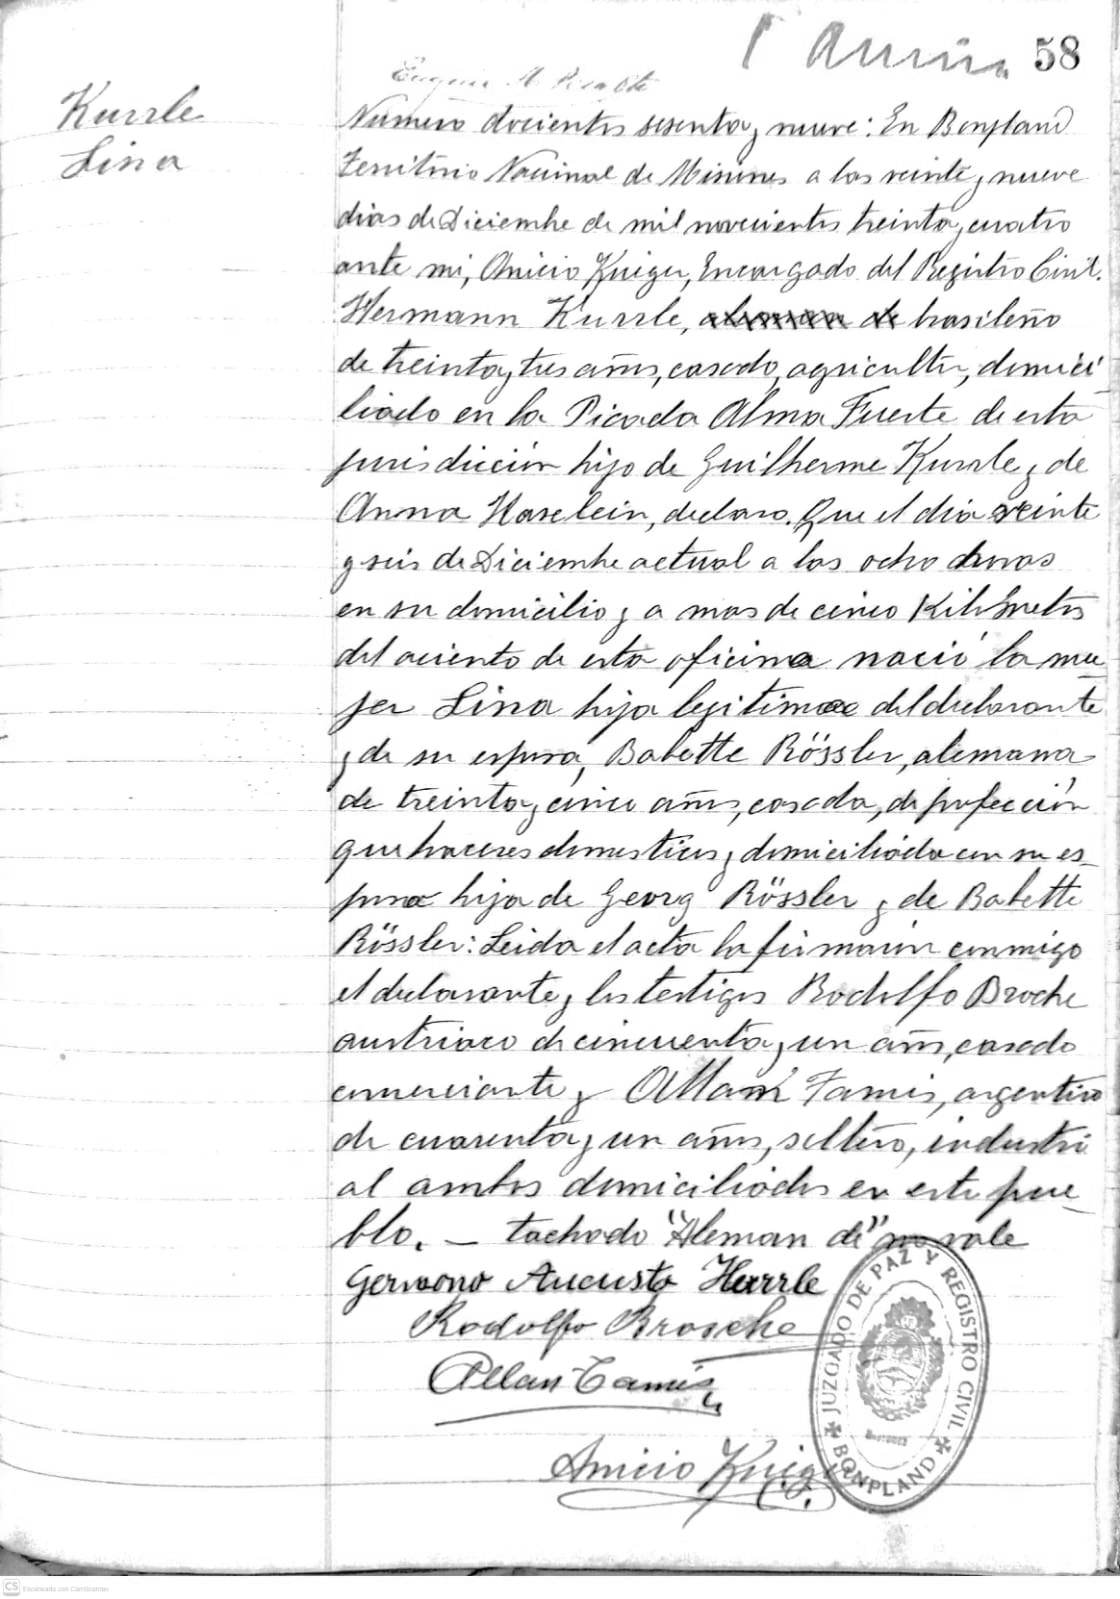 58
Kurrle
Lina
Número docientos sesenta y nueve: En Bonpland
Territorio Nacional de Misiones a los veinte y nueve
dias de Diciembre de mil novecientos treinta y cuatro
ante mi, Anicio Kuiger, Encargado del Registro Civil.
Hermann Kurrle, aleman de brasileño
de treinta y tres años, casado, agricultor, domici
liado en la Picada Alma Fuerte de esta
jurisdicción hijo de Guilherme Kurrle y de
Anna Haselein, declaro. Que el dia veinte
y seis de Diciembre actual a las ocho horas
en su domicilio y a mas de cinco Kilometros
del aciento de esta oficina nació la mu
jer Lina hija legitima del declarante
y de su esposa, Babette Rössler, alemana
de treinta y cinco años, casada, de profección
quehaceres domesticos y domiciliada con su es
poso hija de Georg Rössler y de Babette
Rössler: Leida el acta la firmaron conmigo
el declarante y los testigos Rodolfo Broche
austriaco de cincuenta y un años, casado
comerciante y Allan Tamis, argentino
de cuarenta y un años, soltero, industri
al ambos domiciliados en este pue
blo. – tachado "Aleman de" no vale
Germano Augusto Kurrle
Rodolfo Brosche
Allan Tamis
Anicio Kuiger
JUZGADO DE PAZ Y REGISTRO CIVIL
BONPLAND
CS Escaneado con CamScanner